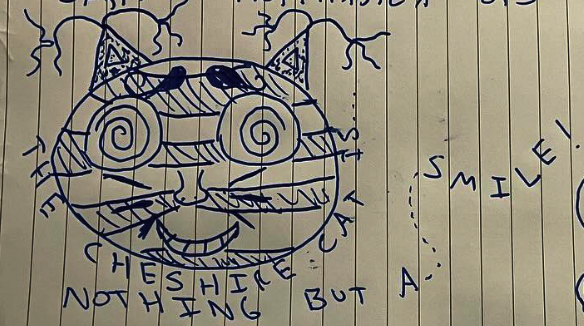 THE CHESHIRE CAT IS...
NOTHING BUT A... SMILE!